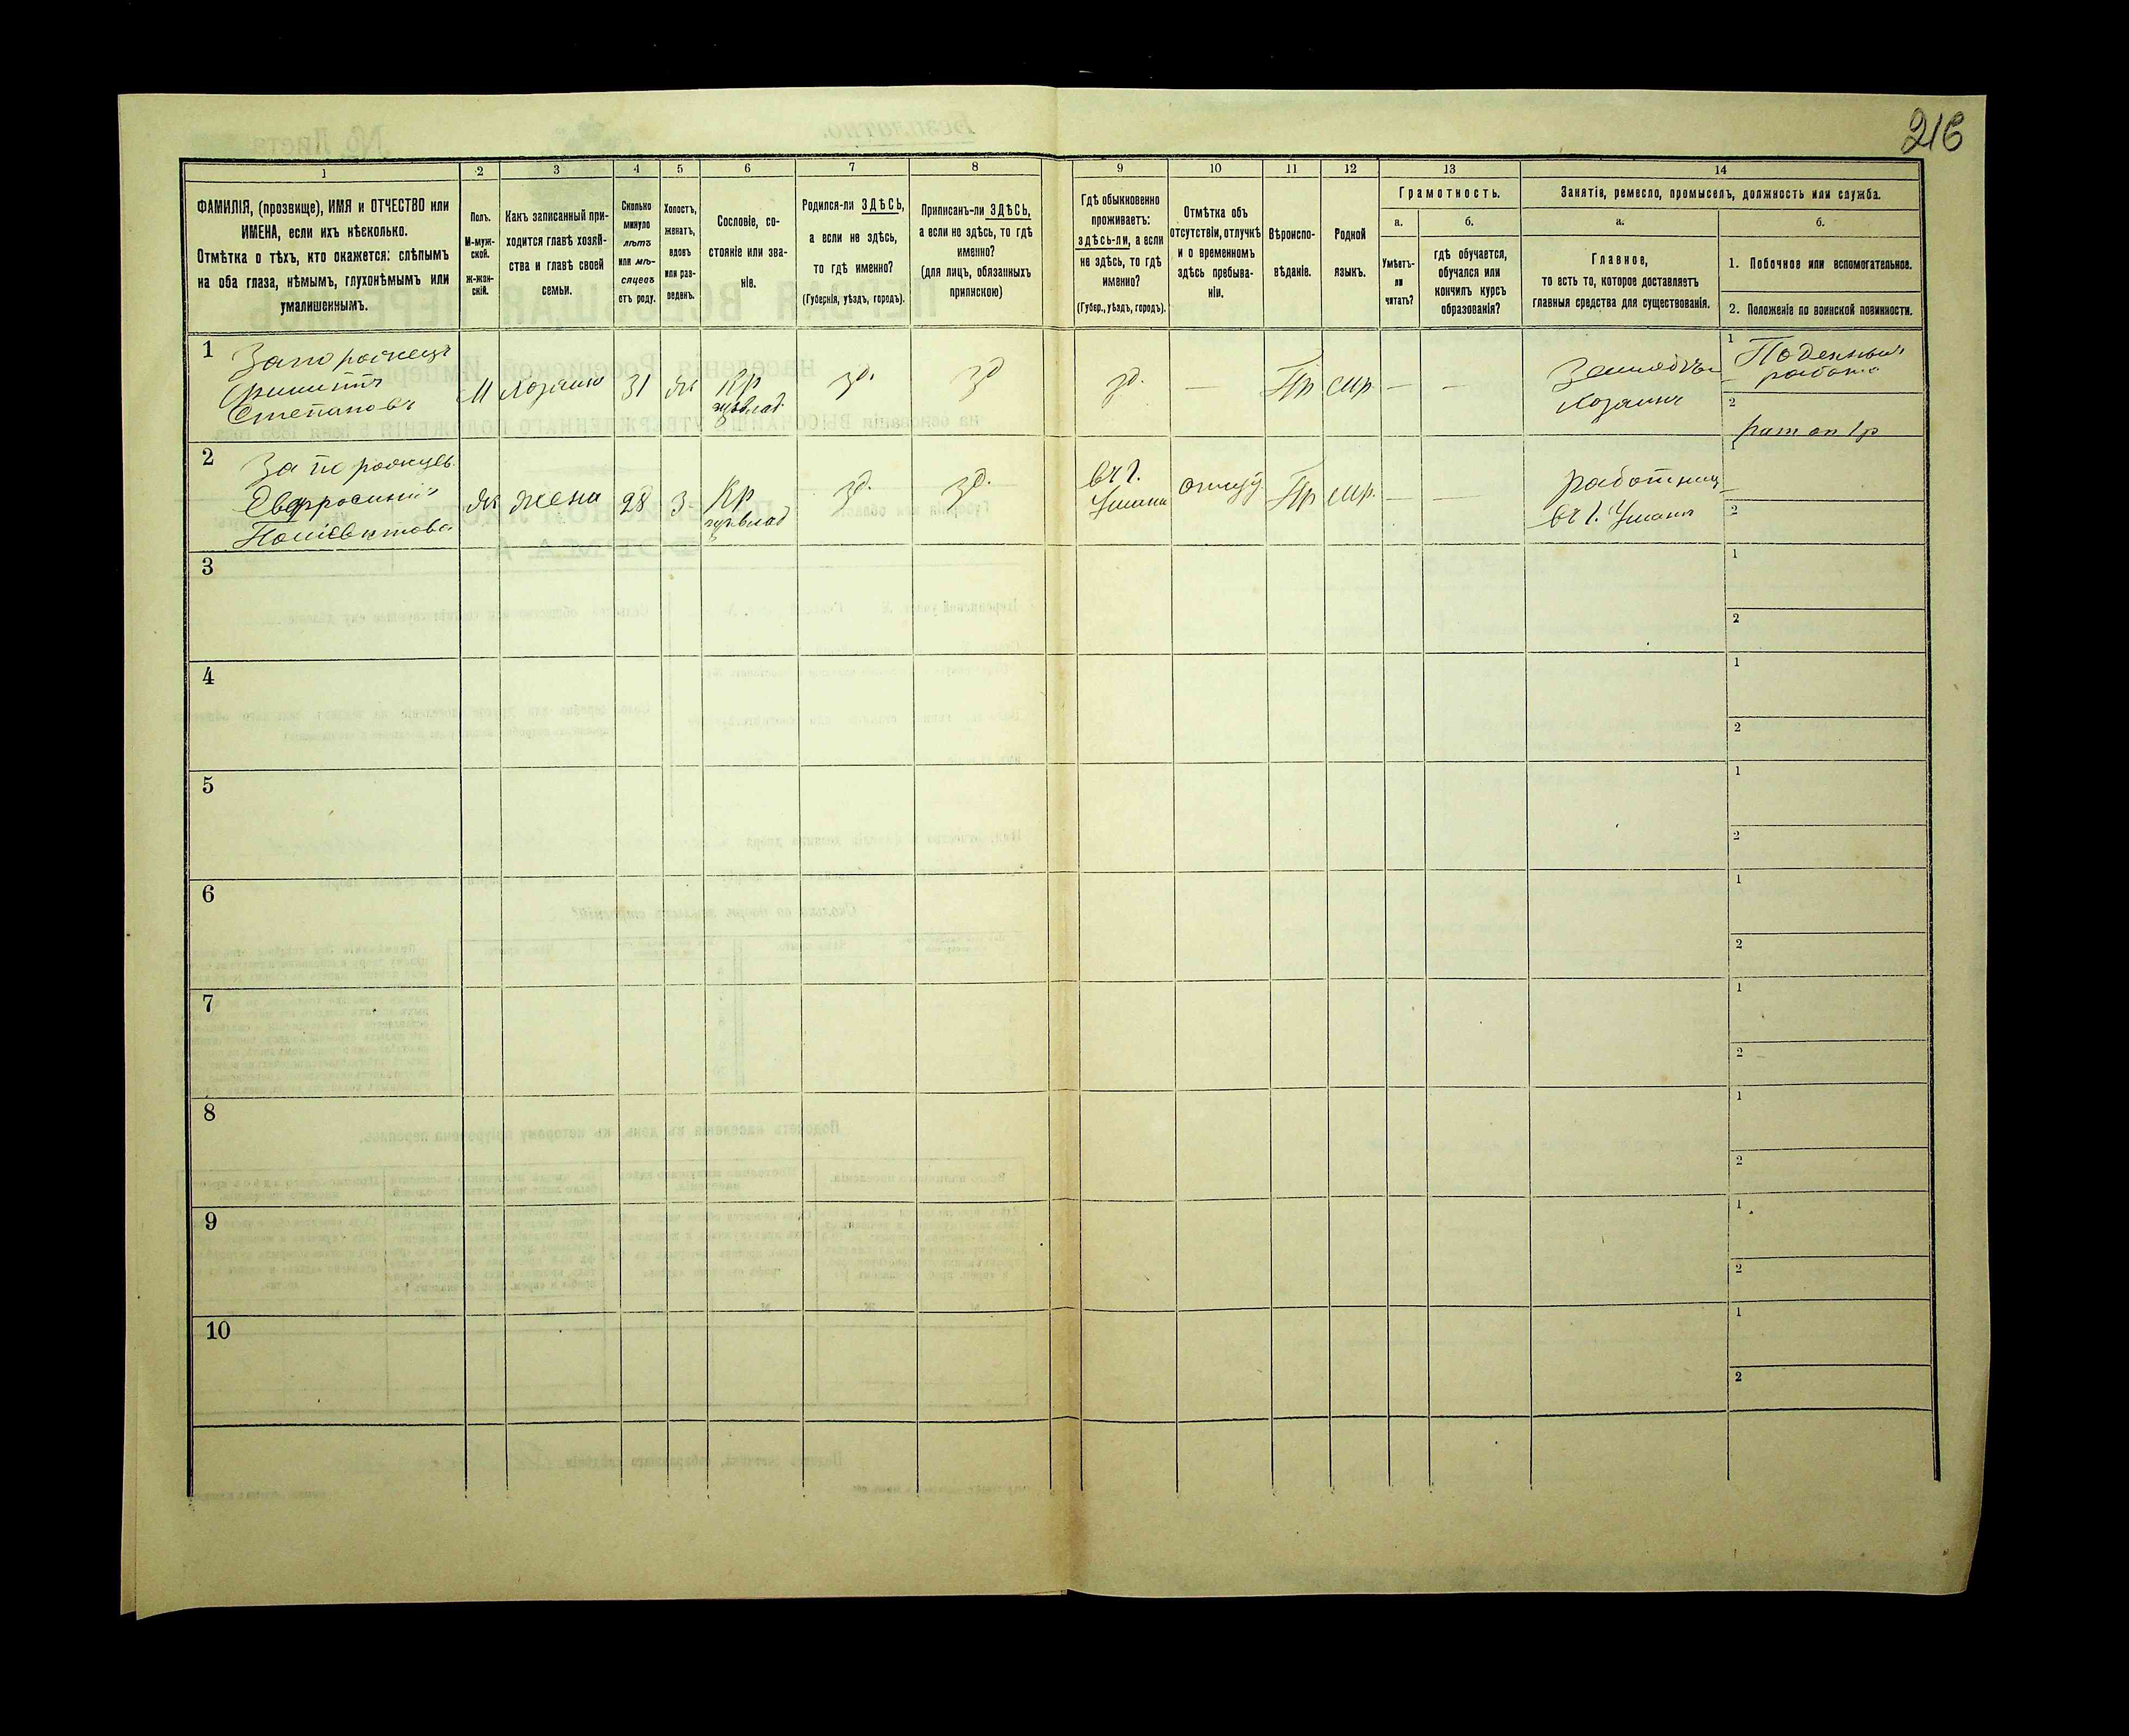 216
1
2
3
4
5
6
7
8
9
10
11
12
13
14
ФАМИЛІЯ, (прозвище), ИМЯ и ОТЧЕСТВО или
ИМЕНА, если ихъ нѣсколько.
Отмѣтка о тѣхъ, кто окажется: слѣпымъ
на оба глаза, нѣмымъ, глухонѣмымъ или
умалишеннымъ.
Полъ.
М-муж-
ской.
ж-жен-
скій.
Какъ записанный при-
ходится главѣ хозяй-
ства и главѣ своей
семьи.
Сколько
минуло
лѣтъ
или мѣ-
сяцевъ
отъ роду.
Холостъ,
женатъ,
вдовъ
или раз-
веденъ.
Сословіе, со-
стояніе или зва-
ніе.
Родился-ли ЗДѢСЬ,
а если не здѣсь,
то гдѣ именно?
(Губернія, уѣздъ, городъ).
Приписанъ-ли ЗДѢСЬ,
а если не здѣсь, то гдѣ
именно?
(для лицъ, обязанныхъ
припискою)
Гдѣ обыкновенно
проживаетъ:
здѣсь-ли, а если
не здѣсь, то гдѣ
именно?
(Губер., уѣздъ, городъ).
Отмѣтка объ
отсутствіи, отлучкѣ
и о временномъ
здѣсь пребыва-
ніи.
Вѣроиспо-
вѣданіе.
Родной
языкъ.
Грамотность.
а.
Умѣетъ-
ли
читать?
б.
гдѣ обучается,
обучался или
кончилъ курсъ
образованія?
Занятія, ремесло, промыселъ, должность или служба.
а.
Главное,
то есть то, которое доставляетъ
главныя средства для существованія.
б.
1. Побочное или вспомогательное.
2. Положеніе по воинской повинности.
1
Запорожецъ
Филиппъ
Степановъ
М
хозяинъ
31
ж
Кр
зд.
зд
зд.
—
Пр
мр.
—
—
хозяинъ
1
Поденный
работа
2
2
Запорожцев.
Евфросинія
Поліевктова
Ж
жена
28
З
Кр
зд.
зд.
въ г.
Умани
Пр
мр.
—
—
работниц
въ г. Умань
1
—
2
3
1
2
4
1
2
5
1
2
6
1
2
7
1
2
8
1
2
9
1
2
10
1
2